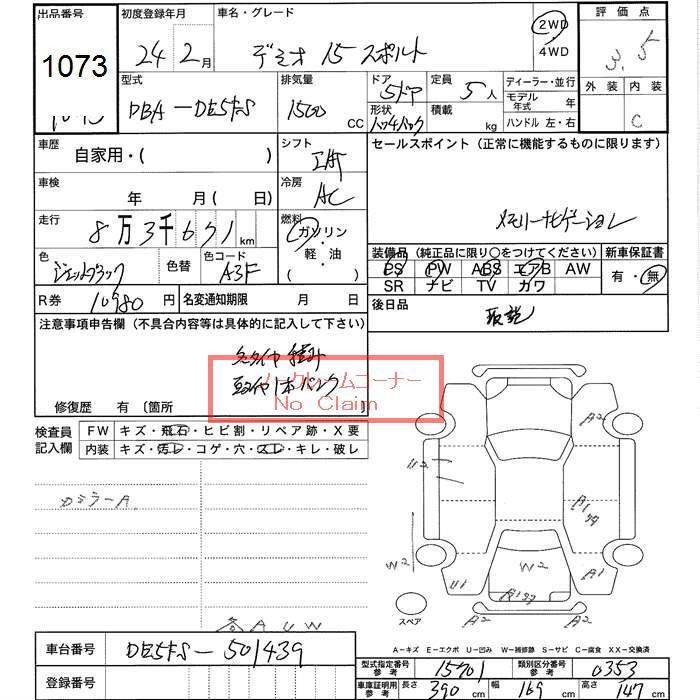 出品番号 初度登録年月 車名・グレード 評価点
1073 24 2月 デミオ 15 スポルト 2WD 4WD 3.5
型式 排気量 ドア 定員 ディーラー・並行 外装 内装
DBA-DE5FS 1500 CC 5ドア 5人 モデル年式 年 C
形状 ハッチバック 積載 kg ハンドル 左・右
車歴 自家用・( ) シフト セールスポイント (正常に機能するものに限ります)
車検 年 月( 日) 冷房 AC メモリーナビゲーション
走行 8万3千651km 燃料 ガソリン・軽・油 ( )
装備品 (純正品に限り○をつけてください) 新車保証書
色 ジェットブラック 色替 色コード A3F PS PW ABS エアB AW 有・無
SR ナビ TV カワ
R券 10980円 名変通知期限 月 日 後日品 取説
注意事項申告欄 (不具合内容等は具体的に記入して下さい)
冬タイヤ積み
夏タイヤ1本パンク
ノークレームコーナー
No Claim
修復歴 有 〔箇所 〕
検査員記入欄 FW キズ・飛石・ヒビ割・リペア跡・X要
内装 キズ・汚レ・コゲ・穴・スレ・キレ・破レ
ミラーA
A2
U2
A1
W2 W2
U1 A1
A2 A2
スペア
各AUW
A-キズ E-エクボ U-凹み W-補修跡 S-サビ C-腐食 XX-交換済
車台番号 DE5FS-501439
型式指定番号 参考 15701 類別区分番号 参考 0353
登録番号
車庫証明用 参考 長さ 390cm 幅 169cm 高さ 147cm